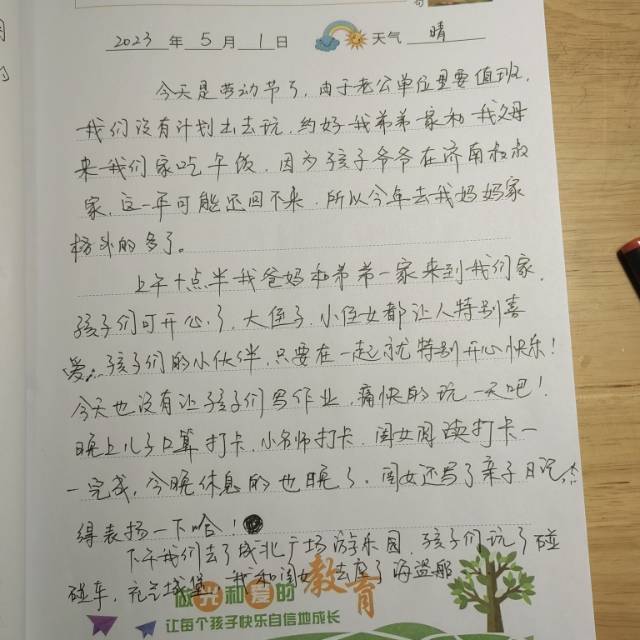 句
2023 年 5 月 1 日 天气 晴
今天是劳动节了,由于老公单位里要值班,
我们没有计划出去玩,约好我弟弟一家和我父母
来我们家吃午饭,因为孩子爷爷在济南叔叔
家,这一年可能还回不来,所以今年去我妈妈家
格外的多了。
上午十点半我爸妈和弟弟一家来到我们家,
孩子们可开心了,大侄子,小侄女都让人特别喜
爱,孩子们的小伙伴,只要在一起就特别开心快乐!
今天也没有让孩子们写作业,痛快的玩一天吧!
晚上儿子口算打卡,小名师打卡,闺女阅读打卡一
一完成,今晚休息的也晚了,闺女还写了亲子日记,
得表扬一下哈!
下午我们去了城北广场游乐园,孩子们玩了碰
碰车,充气城堡,我和闺女去座了海盗船
做光和爱的教育
让每个孩子快乐自信地成长